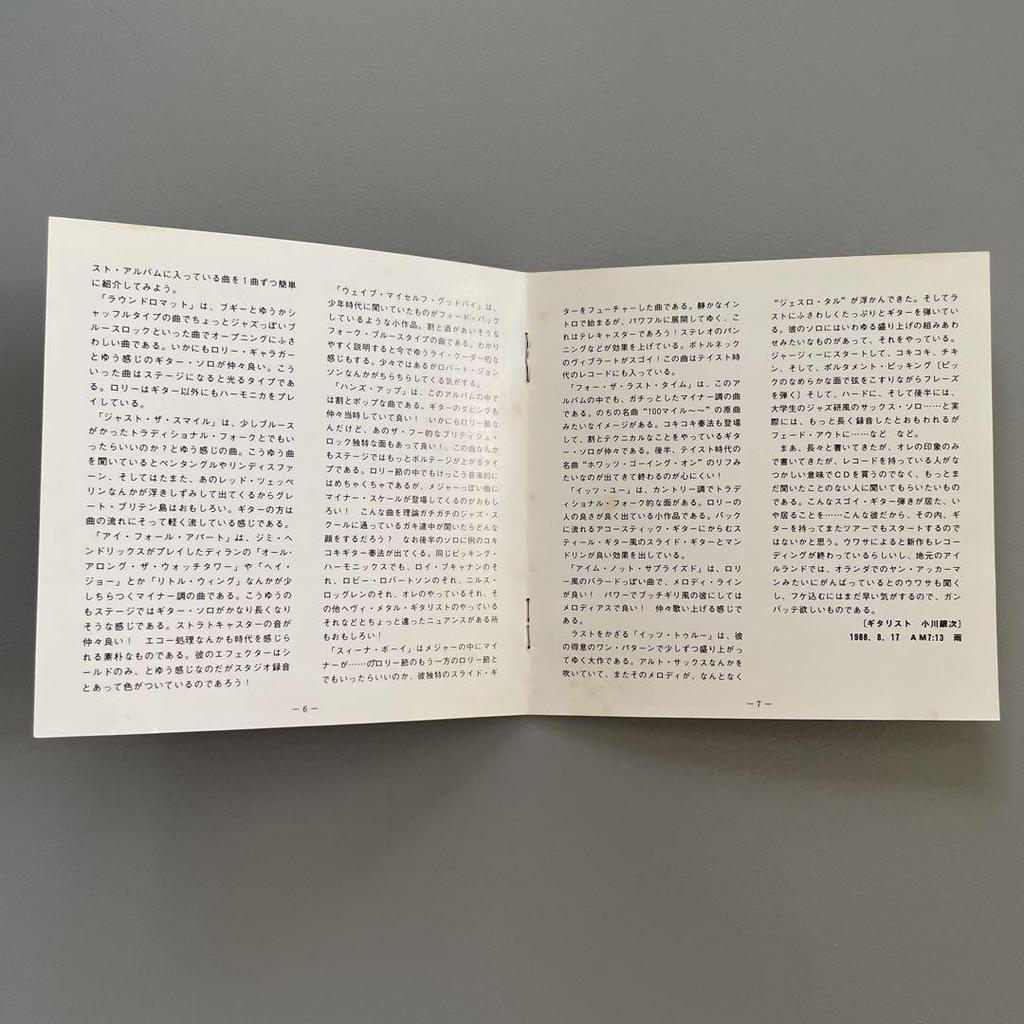 スト・アルバムに入っている曲を１曲ずつ簡単
に紹介してみよう。
「ラウンドロマット」は、ブギーとゆうかシ
ャッフルタイプの曲でちょっとジャズっぽいブ
ルースロックといった曲でオープニングにふさ
わしい曲である。いかにもロリー・ギャラガー
とゆう感じのギター・ソロが仲々良い。こう
いった曲はステージになると光るタイプであ
る。ロリーはギター以外にもハーモニカをプレ
イしている。
「ジャスト・ザ・スマイル」は、少しブルース
がかったトラディショナル・フォークとでもい
ったらいいのか？とゆう感じの曲。こうゆう曲
を聞いているとペンタングルやリンディスファ
ーン、そしてはたまた、あのレッド・ツェッペ
リンなんかが浮きしずみして出てくるからグレ
ート・ブリテン島はおもしろい。ギターの方は
曲の流れにそって軽く流している感じである。
「アイ・フォール・アパート」は、ジミ・ヘ
ンドリックスがプレイしたディランの「オール・
アロング・ザ・ウォッチタワー」や「ヘイ・
ジョー」とか「リトル・ウィング」なんかが少
しちらつくマイナー調の曲である。こうゆうの
もステージではギター・ソロがかなり長くなり
そうな感じである。ストラトキャスターの音が
仲々良い！　エコー処理なんかも時代を感じら
れる素朴なものである。彼のエフェクターはシ
ールドのみ、とゆう感じなのだがスタジオ録音
とあって色がついているのであろう！
「ウェイブ・マイセルフ・グッドバイ」は、
少年時代に聞いていたものがフィード・バック
しているような小作品。割と酒があいそうな
フォーク・ブルースタイプの曲である。わかり
やすく説明すると今でゆうライ・クーダー的な
感じもする。少々ではあるがロバート・ジョン
ソンなんかがちらちらしてくる気がする。
「ハンズ・アップ」は、このアルバムの中で
は割とポップな曲である。ギターのダビングも
仲々当時していて良い！　いかにもロリー節な
んだけど、あのザ・フー的なブリティシュ・
ロック独特な面もあって良い！、この曲なんか
もステージではもっとボルテージが上がるタイ
プである。ロリー節の中でもけっこう音楽的に
はめちゃくちゃであるが、メジャーっぽい曲に
マイナー・スケールが登場してくるのがおもし
ろい！　こんな曲を理論ガチガチのジャズ・ス
クールに通っているガキ連中が聞いたらどんな
顔をするだろう？　なお後半のソロに例のコキ
コキギター奏法が出てくる。同じピッキング・
ハーモニックスでも、ロイ・ブキャナンのそ
れ、ロビー・ロバートソンのそれ、ニルス・
ロッグレンのそれ、オレのやっているそれ、そ
の他ヘヴィ・メタル・ギタリストのやっている
それなどとちょっと違ったニュアンスがある所
もおもしろい！
「スィーナ・ボーイ」はメジャーの中にマイ
ナーが……のロリー節のもう一方のロリー節と
でもいったらいいのか、彼独特のスライド・ギ
－6－
ターをフューチャーした曲である。静かなイン
トロで始まるが、パワフルに展開してゆく、こ
れはテレキャスターであろう！ステレオのパン
ニングなどが効果を上げている。ボトルネック
のヴィブラートがスゴイ！この曲はテイスト時
代のレコードにも入っている。
「フォー・ザ・ラスト・タイム」は、このア
ルバムの中でも、ガチっとしたマイナー調の曲
である。のちの名曲“100マイル～～”の原曲
みたいなイメージがある。コキコキ奏法も登場
して、割とテクニカルなことをやっているギタ
ー・ソロが仲々である。後半、テイスト時代の
名曲“ホワッツ・ゴーイング・オン”のリフみ
たいなのが出てきて終わるのが心にくい！
「イッツ・ユー」は、カントリー調でトラデ
ィショナル・フォーク的な面がある。ロリーの
人の良さが良く出ている小作品である。バック
に流れるアコースティック・ギターにからむス
ティール・ギター風のスライド・ギターとマン
ドリンが良い効果を出している。
「アイム・ノット・サプライズド」は、ロリ
ー風のバラードっぽい曲で、メロディ・ライン
が良い！　パワーでブッチギリ風の彼にしては
メロディアスで良い！　仲々歌い上げる感じで
ある。
ラストをかざる「イッツ・トゥルー」は、彼
の得意のワン・パターンで少しずつ盛り上がっ
てゆく大作である。アルト・サックスなんかを
吹いていて、またそのメロディが、なんとなく
“ジェスロ・タル”が浮かんできた。そしてラ
ストにふさわしくたっぷりとギターを弾いてい
る。彼のソロにはいわゆる盛り上げの組みあわ
せみたいなものがあって、それをやっている。
ジャージィーにスタートして、コキコキ、チキ
ン、そして、ポルタメント・ピッキング〔ピッ
クのなめらかな面で弦をこすりながらフレーズ
を弾く〕そして、ハードに、そして後半には、
大学生のジャズ研風のサックス・ソロ……と実
際には、もっと長く録音したとおもわれるが
フェード・アウトに……など　など。
まあ、長々と書いてきたが、オレの印象のみ
で書いてきたが、レコードを持っている人がな
つかしい意味でＣＤを買うのでなく、もっとま
だ聞いたことのない人に聞いてもらいたいもの
である。こんなスゴイ・ギター弾きが居た、い
や居ることを……こんな彼だから、その内、ギ
ターを持ってまたツアーでもスタートするので
はないかと思う。ウワサによると新作もレコー
ディングが終わっているらしいし、地元のアイ
ルランドでは、オランダでのヤン・アッカーマ
ンみたいにがんばっているとのウワサも聞く
し、フケ込むにはまだ早い気がするので、ガン
バッテ欲しいものである。
〔ギタリスト　小川銀次〕
1988. 8. 17　AM7:13　雨
－7－